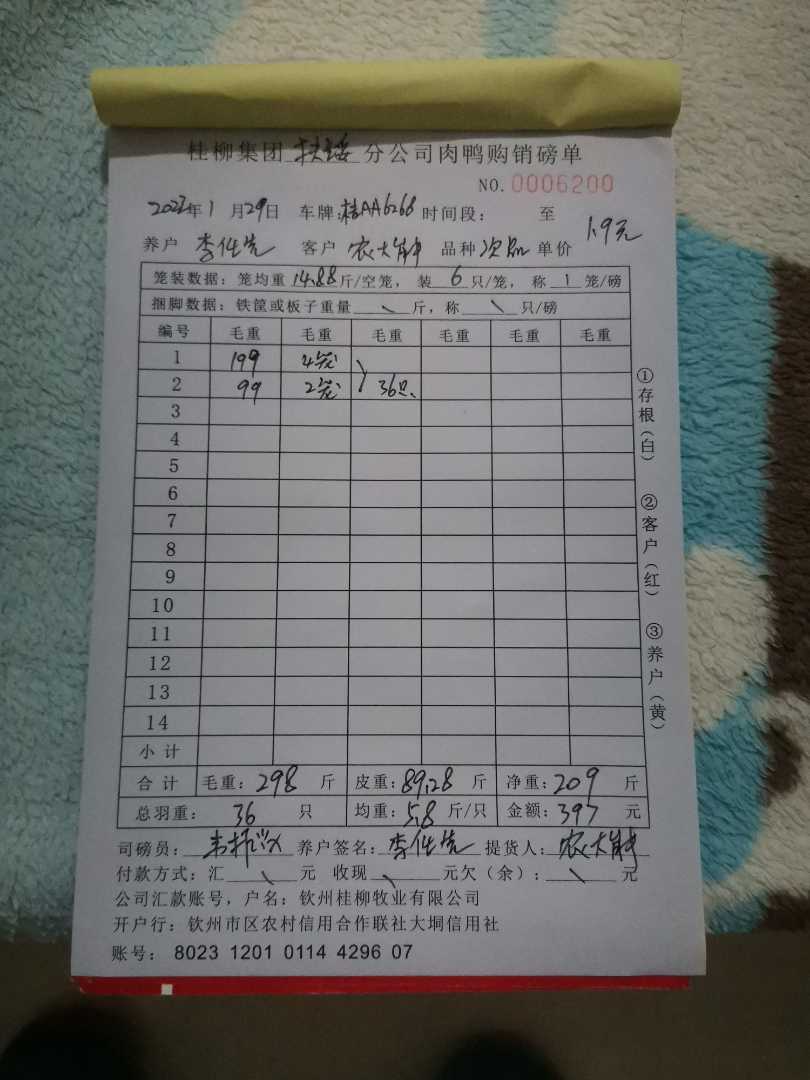 桂柳集团 扶绥 分公司肉鸭购销磅单
NO.0006200
2023年1月29日 车牌:桂AA6268 时间段: 至
养户 李仕 客户 农大 品种 次品 单价 1.9元
笼装数据:笼均重14.88斤/空笼,装6只/笼,称1笼/磅
捆脚数据:铁筐或板子重量\斤,称\只/磅
编号 毛重 毛重 毛重 毛重 毛重 毛重
1 199 4笼
2 99 2笼 36只
3
4
5
6
7
8
9
10
11
12
13
14
小计
合计 毛重:298斤 皮重:89.28斤 净重:209斤
总羽重:36只 均重:5.8斤/只 金额:397元
司磅员:韦振兴 养户签名:李仕 提货人:农大
付款方式:汇\元 收现\元欠(余):\元
公司汇款账号,户名:钦州桂柳牧业有限公司
开户行:钦州市区农村信用合作联社大垌信用社
账号: 8023 1201 0114 4296 07
①存根(白) ②客户(红) ③养户(黄)